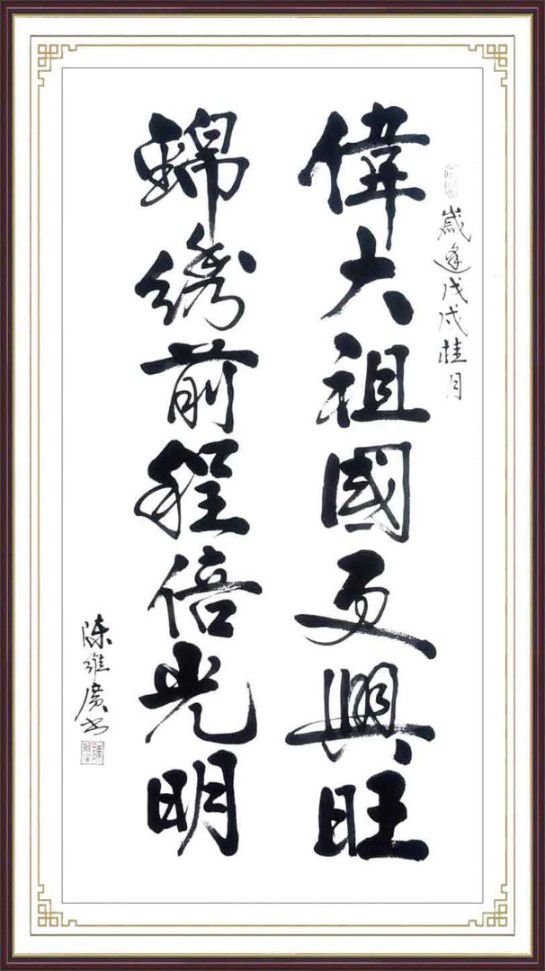 歲逢戊戌桂月
偉大祖國更興旺
錦绣前程倍光明
陈维廣书